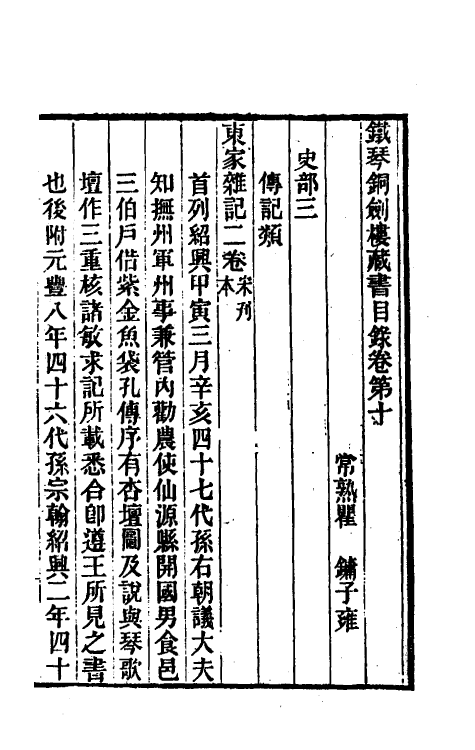 鐵琴銅劍樓藏書目錄卷第十
常熟瞿　鏞子雍
史部三
傳記類
東家雜記二卷宋刋本
首列紹興甲寅三月辛亥四十七代孫右朝議大夫
知撫州軍州事兼管內勸農使仙源縣開國男食邑
三伯戶借紫金魚袋孔傳序有杏壇圖及說與琴歌
壇作三重核諸敏求記所載悉合卽遵王所見之書
也後附元豐八年四十六代孫宗翰紹興二年四十